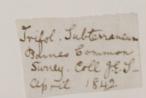 Trifol. Subterraneum
Barnes Common
Surrey. Coll J.E.S—
April 1842